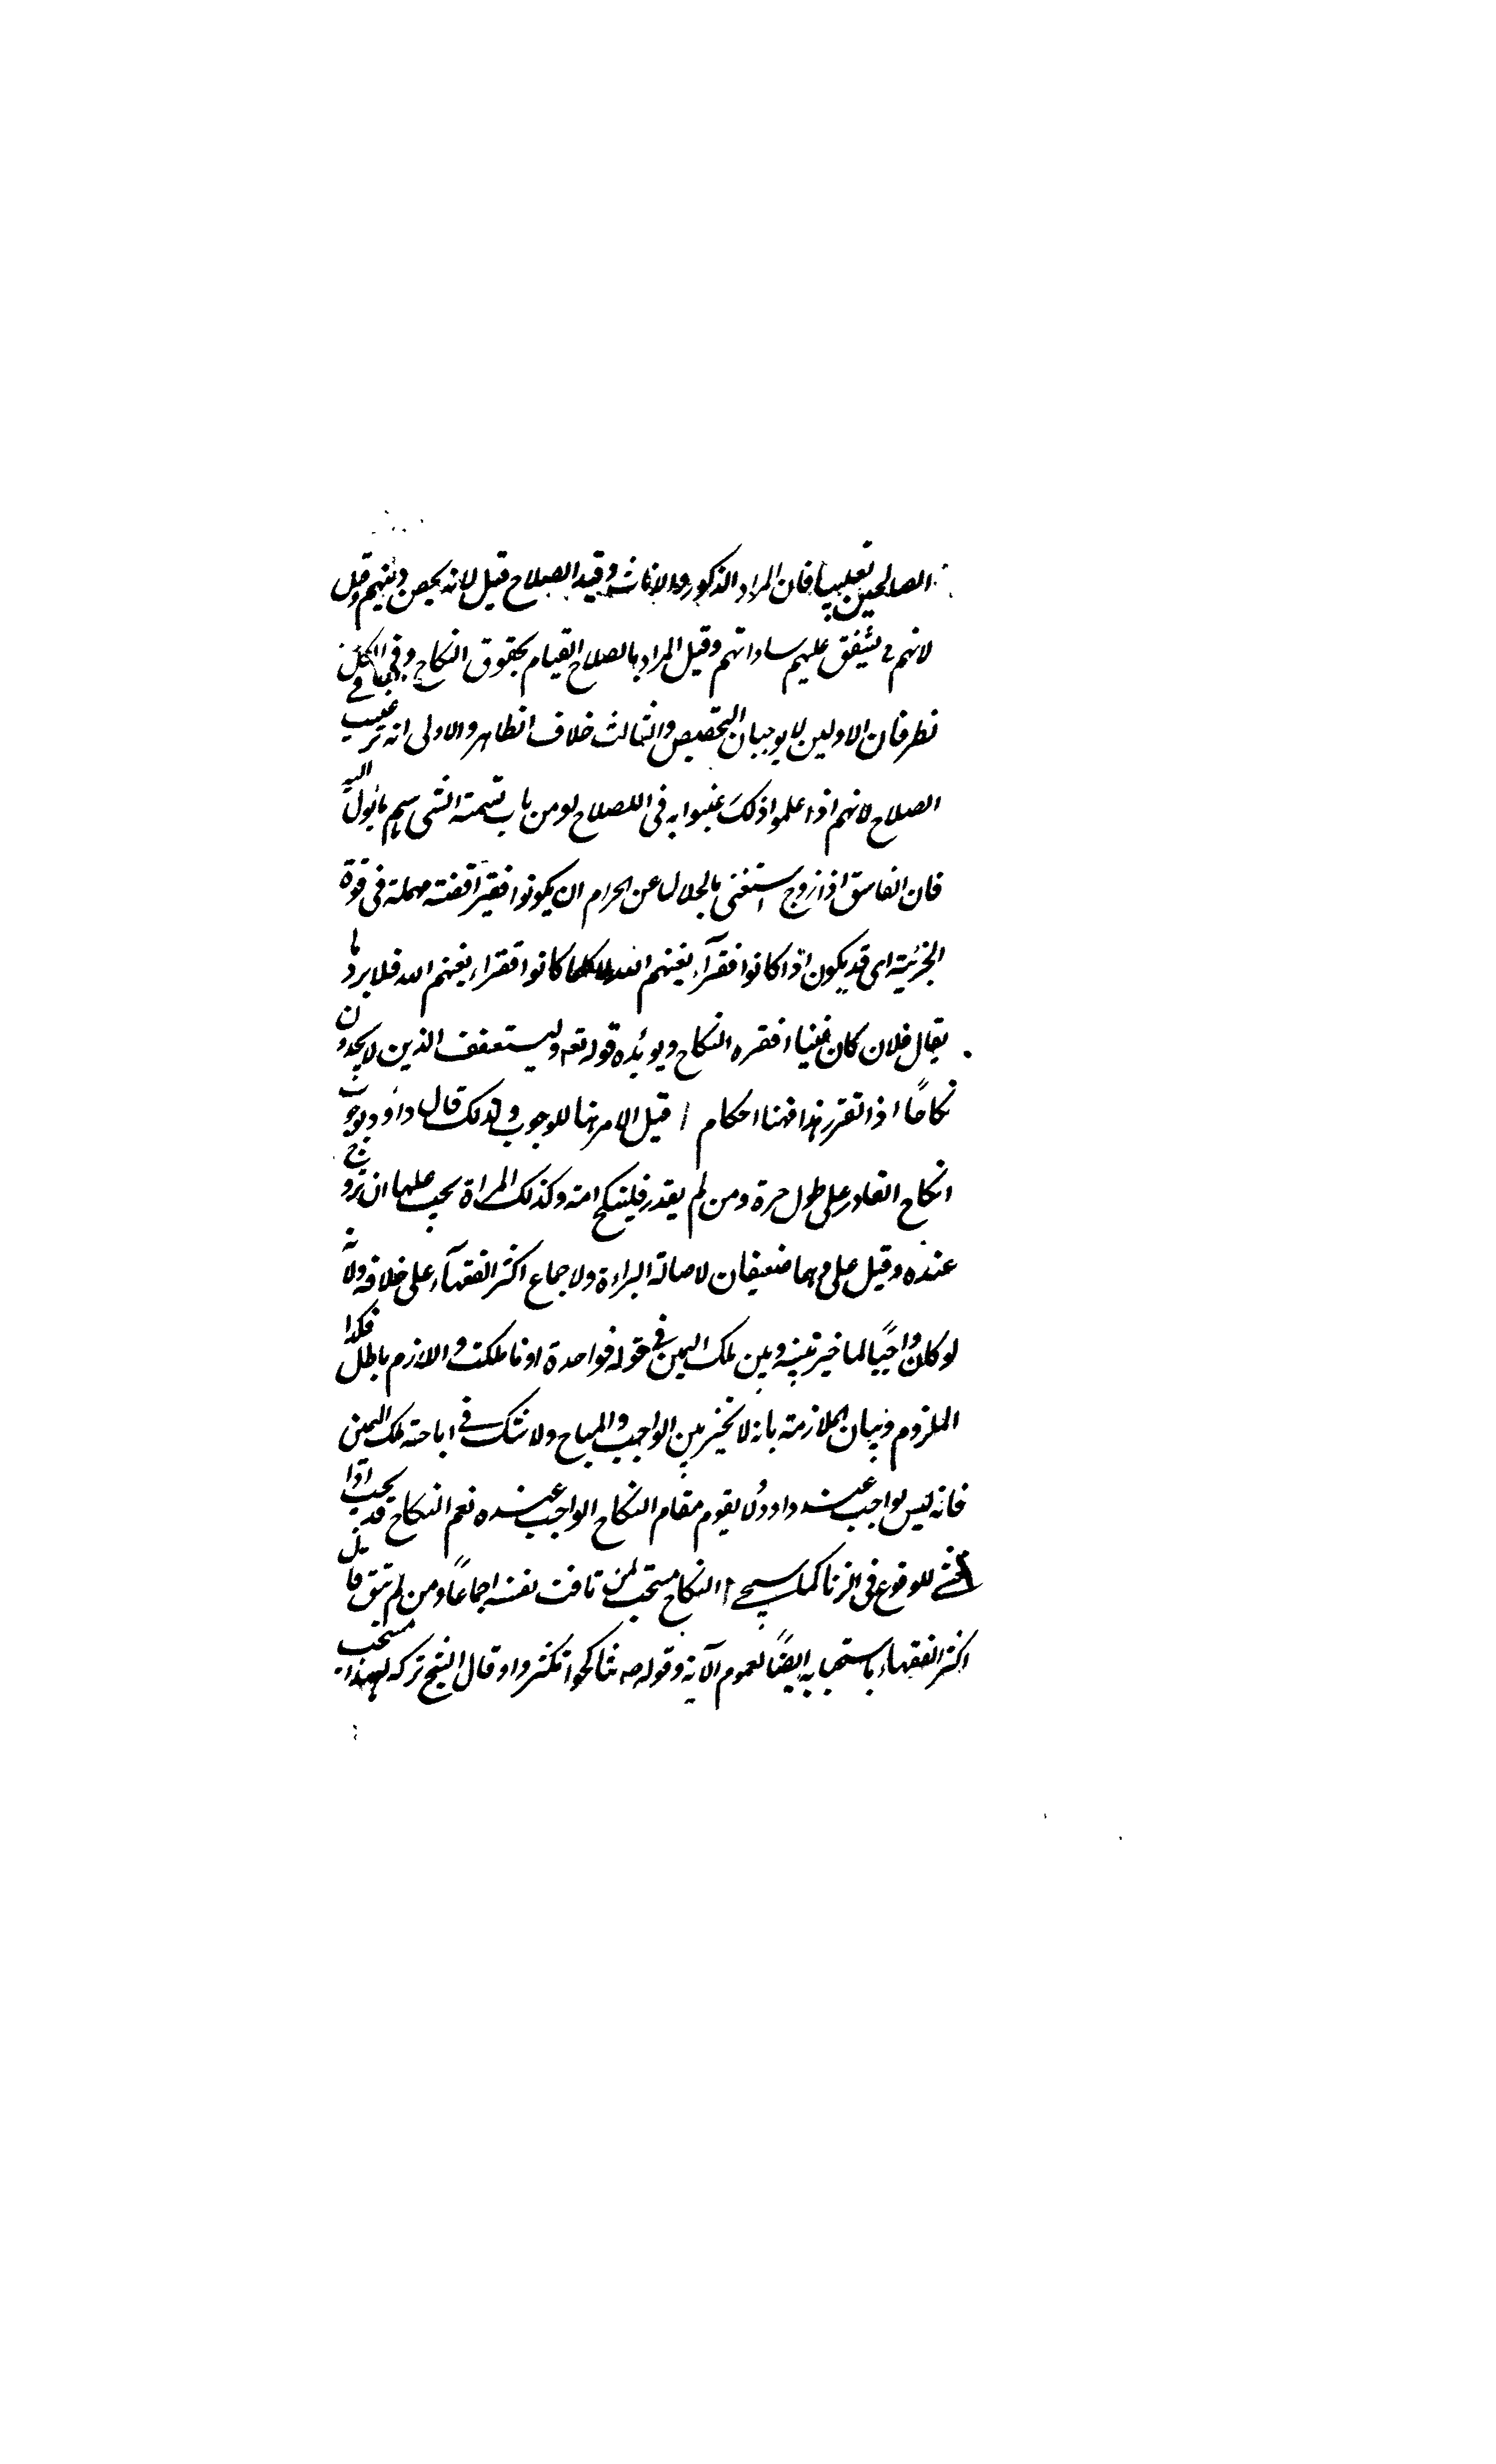 الصالحين تغليبا فان المراد الذكور والاناث وقيد الصلاح قيل لانه يحصن دينهم وقيل
لانهم يشفق عليهم ساداتهم وقيل المراد بالصلاح القيام بحقوق النكاح وفي الكل
نظر فان الاولين لا يوجبان التخصيص والثالث خلاف الظاهر والاولى انه ترغيب في
الصلاح لانهم اذا علموا ذلك رغبوا به في الصلاح او من باب تسمية الشي باسم ما يؤل اليه
فان الفاسق اذا زوج استغنى بالحلال عن الحرام ان يكونوا فقرآ قضية مهملة في قوة
الجزئية اي قد يكون اذا كانوا فقرآء يغنهم الله لا كلما كانوا فقراء يغنهم الله فلا يرد ما
يقال فلان كان غنيا افقره النكاح ويؤيده قوله تعه وليستعفف الذين لا يجدون
نكاحًا اذا تقرر هذا فهنا احكام ا قيل الامر هنا للوجوب ولذلك قال داود بوجوب
انكاح القادر على طول حرة ومن لم يقدر فلينكح امة وكذلك المراة يجب عليها ان تزوج
عنده وقيل على وهما ضعيفان لاصالة البراءة ولاجماع اكثر الفقهآء على خلافه ولانه
لو كان واجبًا لما خير بينه وبين ملك اليمين في قوله فواحدة او ما ملكت واللازم باطل فكذا
الملزوم وبيان الملازمة بانه لا تخير بين الواجب والمباح ولا شك في اباحة ملك اليمين
فانه ليس بواجب عند داود ولا يقوم مقام النكاح الواجب عنده نعم النكاح قد يجب اذا
خشي للوقوع في الزنا كما سيجي ا النكاح مستحب لمن تاقت نفسه اجماعًا ومن لم تتق قايل
اكثر الفقهاء باستحبابه ايضًا لعموم الآية وقوله صه تناكحوا تكثروا وقال الشيخ تركه لهذا مستحب